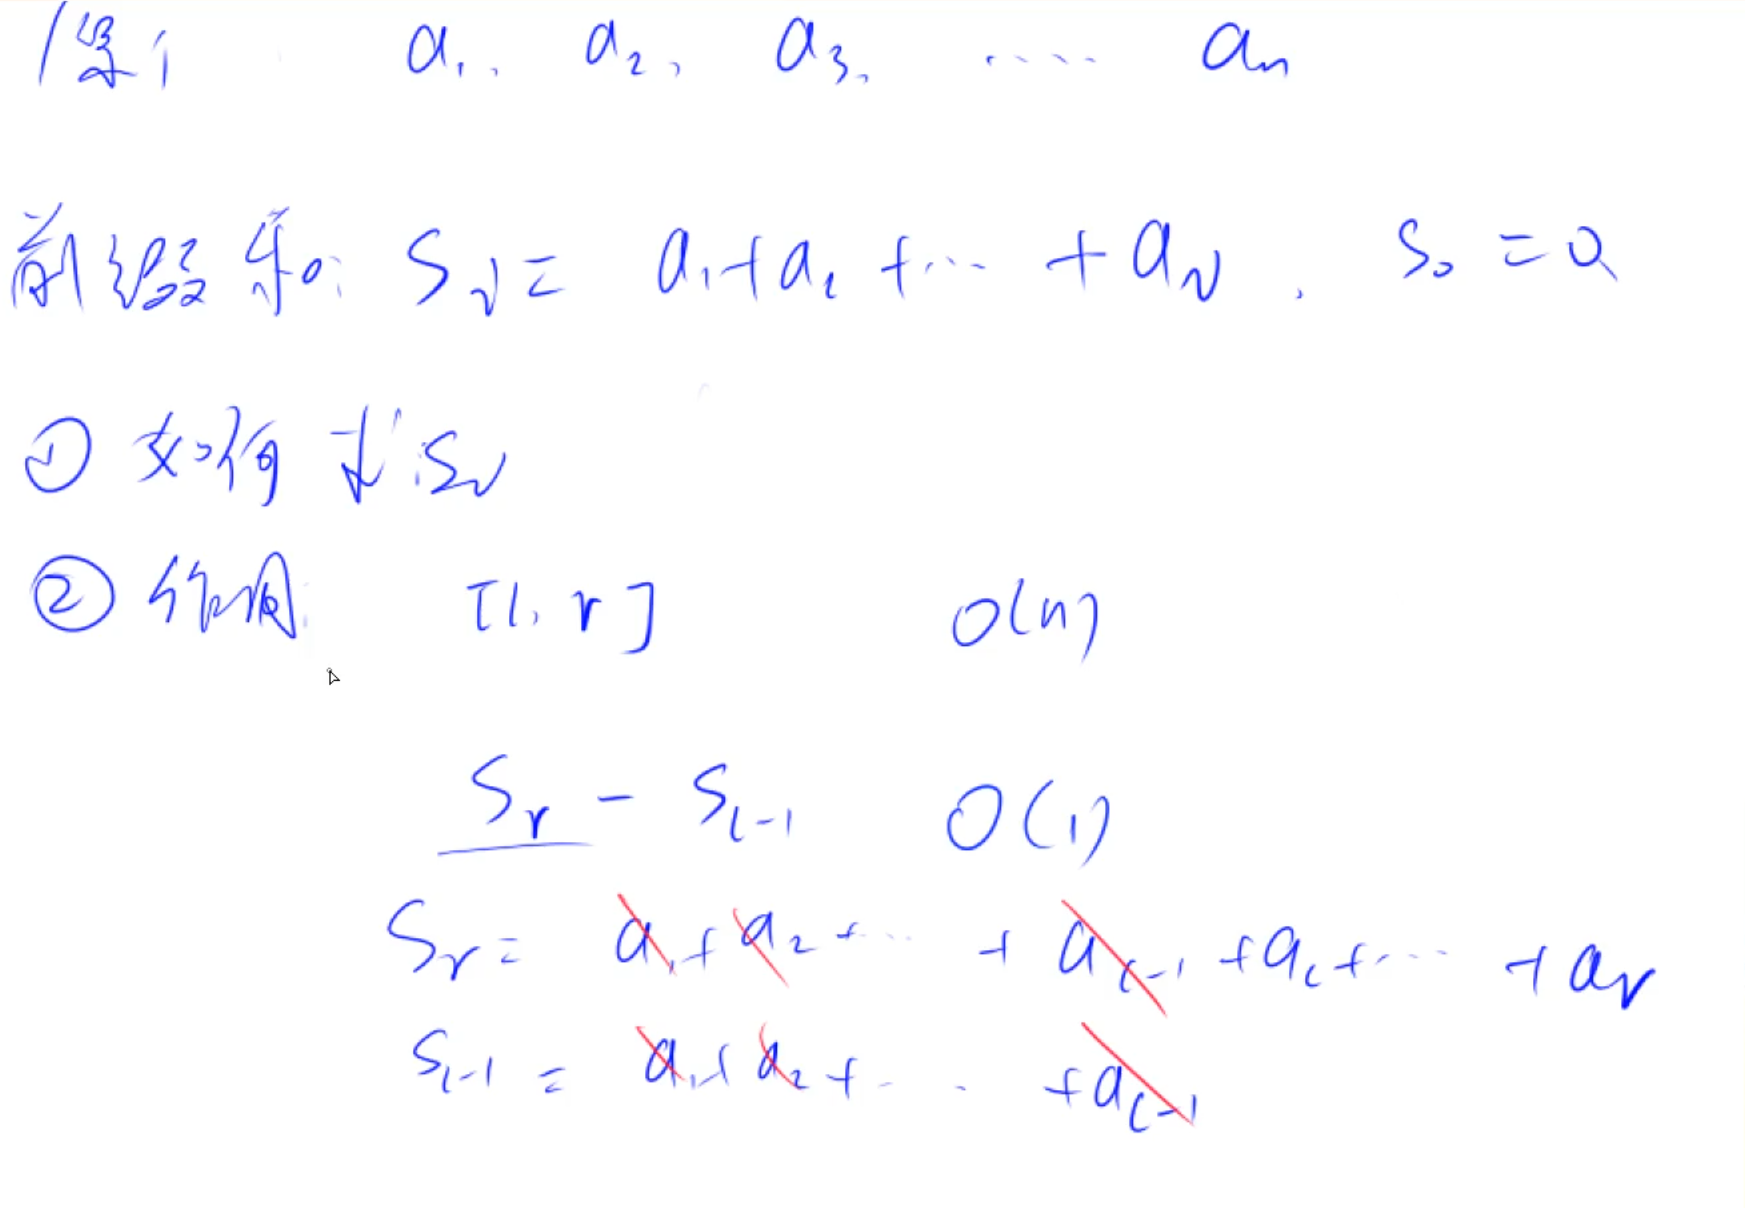 a₁, a₂, a₃, ..... aₙ
前缀和: Sᵢ = a₁+a₂+... +aᵢ. S₀ = 0
① 如何求Sᵢ
② 作用: [l, r] O(n)
Sᵣ - Sₗ₋₁ O(1)
Sᵣ = a₁+a₂+... +aₗ₋₁+aₗ+... +aᵣ
Sₗ₋₁ = a₁+a₂+... +aₗ₋₁